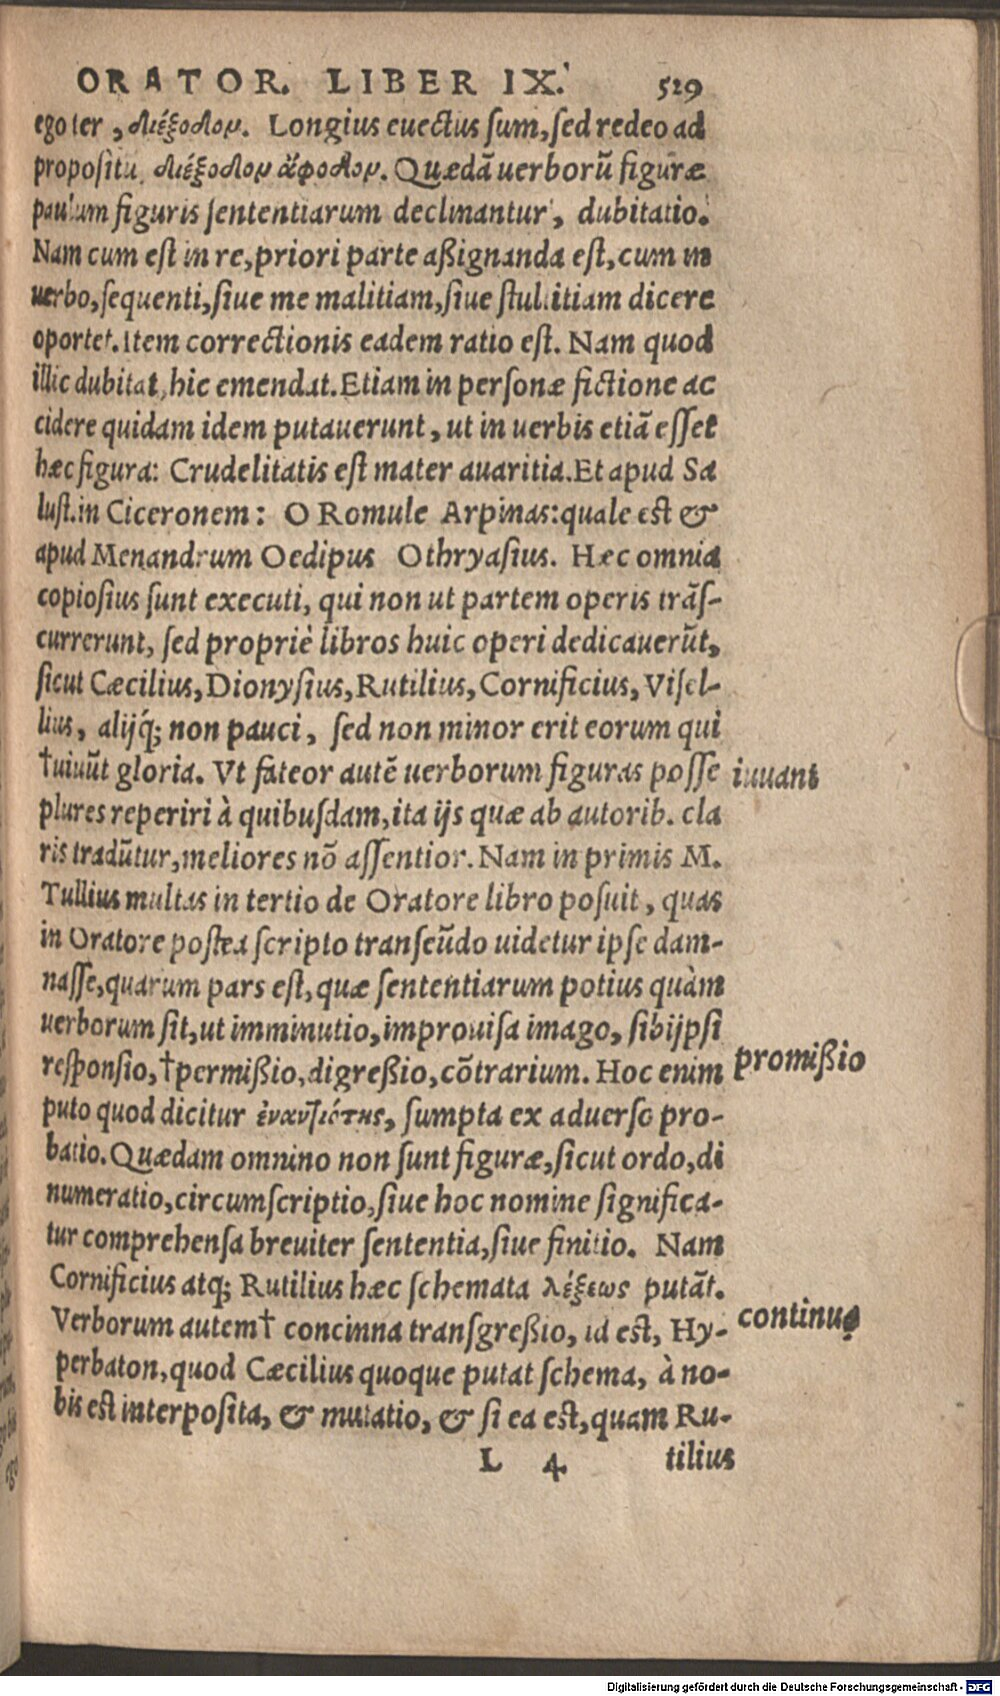 ORATOR. LIBER IX. 529
ego ter, διέξοδον. Longius euectus sum, sed redeo ad
propositũ διέξοδον ἄφοδον. Quædã uerborũ figuræ
paulum figuris sententiarum declinantur, dubitatio.
Nam cum est in re, priori parte aßignanda est, cum in
uerbo, sequenti, siue me malitiam, siue stultitiam dicere
oportet. Item correctionis eadem ratio est. Nam quod
illic dubitat, hic emendat. Etiam in personæ fictione ac
cidere quidam idem putauerunt, ut in uerbis etiã esset
hæc figura: Crudelitatis est mater auaritia. Et apud Sa
lust. in Ciceronem: O Romule Arpinas: quale est &
apud Menandrum Oedipus Othryasius. Hæc omnia
copiosius sunt executi, qui non ut partem operis trãs-
currerunt, sed propriè libros huic operi dedicauerũt,
sicut Cæcilius, Dionysius, Rutilius, Cornificius, Visel-
lius, alijq́; non pauci, sed non minor erit eorum qui
†uiuũt gloria. Vt fateor autẽ uerborum figuras posse iuuant
plures reperiri à quibusdam, ita ijs quæ ab autorib. cla
ris tradũtur, meliores nõ assentior. Nam in primis M.
Tullius multas in tertio de Oratore libro posuit, quas
in Oratore postea scripto transeũdo uidetur ipse dam-
nasse, quarum pars est, quæ sententiarum potius quàm
uerborum sit, ut imminutio, improuisa imago, sibijpsi
responsio, †permißio, digreßio, cõtrarium. Hoc enim promißio
puto quod dicitur ἐναντιότης, sumpta ex aduerso pro-
batio. Quædam omnino non sunt figuræ, sicut ordo, di
numeratio, circumscriptio, siue hoc nomine significa-
tur comprehensa breuiter sententia, siue finitio. Nam
Cornificius atq; Rutilius hæc schemata λέξεως putãt.
Verborum autem† concinna transgreßio, id est, Hy- continua
perbaton, quod Cæcilius quoque putat schema, à no-
bis est interposita, & mutatio, & si ea est, quam Ru-
L 4 tilius
Digitalisierung gefördert durch die Deutsche Forschungsgemeinschaft - DFG